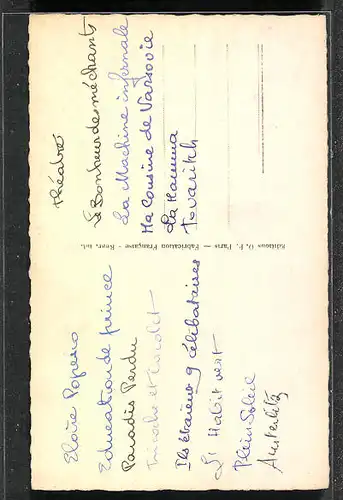 Elvire Popesco
Education de prince
Paradis Perdu
Tricoche et Cacolet
Ils étaient 9 célibataires
L'Habit vert
Plein Soleil
Austerlitz
Editions O. P. Paris — Fabrication Française - Repr. int.
Théâtre
Le Bonheur des méchants
La Machine infernale
Ma Cousine de Varsovie
La Mamma
Tovaritch